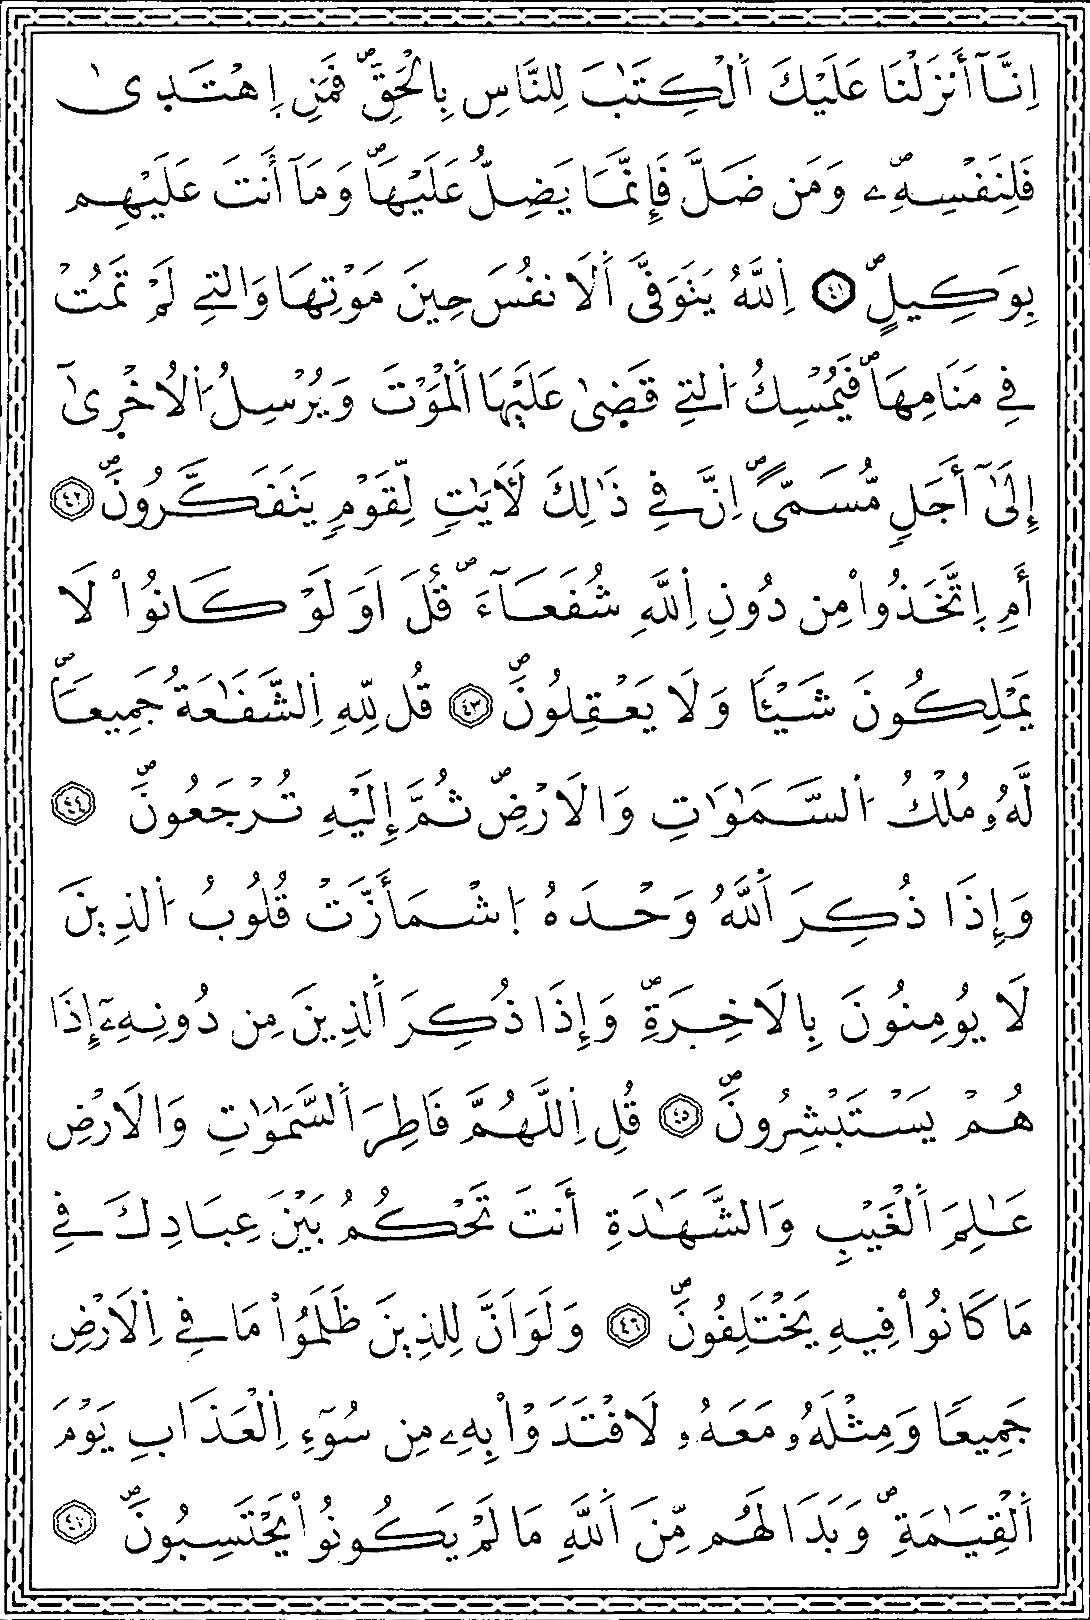 اِنَّآ أَنزَلْنَا عَلَيْكَ اَ۬لْكِتَٰبَ لِلنَّاسِ بِالْحَقِّۖ فَمَنِ اِ۪هْتَد۪ىٰ
فَلِنَفْسِهِۦۖ وَمَن ضَلَّ فَإِنَّمَا يَضِلُّ عَلَيْهَاۖ وَمَآ أَنتَ عَلَيْهِم
بِوَكِيلٍۖ ٤١ اِ۬للَّهُ يَتَوَفَّى اَ۬لَانفُسَ حِينَ مَوْتِهَا وَالتِے لَمْ تَمُتْ
فِے مَنَامِهَاۖ فَيُمْسِكُ اُ۬لتِے قَض۪ىٰ عَلَيْهَا اَ۬لْمَوْتَ وَيُرْسِلُ اُ۬لُاخْر۪ىٰٓ
إِلَىٰٓ أَجَلٖ مُّسَمّيًۖ اِنَّ فِے ذَٰلِكَ لَأٓيَٰتٖ لِّقَوْمٖ يَتَفَكَّرُونَۖ ٤٢
أَمِ اِ۪تَّخَذُواْ مِن دُونِ اِ۬للَّهِ شُفَعَآءَۖ قُلَ اَوَلَوْ كَانُواْ لَا
يَمْلِكُونَ شَيْـٔاٗ وَلَا يَعْقِلُونَۖ ٤٣ قُل لِّلهِ اِ۬لشَّفَٰعَةُ جَمِيعاٗۖ
لَّهُۥ مُلْكُ اُ۬لسَّمَٰوَٰتِ وَالَارْضِۖ ثُمَّ إِلَيْهِ تُرْجَعُونَۖ ٤٤
وَإِذَا ذُكِرَ اَ۬للَّهُ وَحْدَهُ اُ۪شْمَأَزَّتْ قُلُوبُ اُ۬لذِينَ
لَا يُومِنُونَ بِالَاخِرَةِۖ وَإِذَا ذُكِرَ اَ۬لذِينَ مِن دُونِهِۦٓ إِذَا
هُمْ يَسْتَبْشِرُونَۖ ٤٥ قُلِ اِ۬للَّهُمَّ فَاطِرَ اَ۬لسَّمَٰوَٰتِ وَالَارْضِ
عَٰلِمَ اَ۬لْغَيْبِ وَالشَّهَٰدَةِ أَنتَ تَحْكُمُ بَيْنَ عِبَادِكَ فِے
مَا كَانُواْ فِيهِ يَخْتَلِفُونَۖ ٤٦ وَلَوَ اَنَّ لِلذِينَ ظَلَمُواْ مَا فِے اِ۬لَارْضِ
جَمِيعاٗ وَمِثْلَهُۥ مَعَهُۥ لَافْتَدَوْاْ بِهِۦ مِن سُوٓءِ اِ۬لْعَذَابِ يَوْمَ
اَ۬لْقِيَٰمَةِۖ وَبَدَا لَهُم مِّنَ اَ۬للَّهِ مَا لَمْ يَكُونُواْ يَحْتَسِبُونَۖ ٤٧